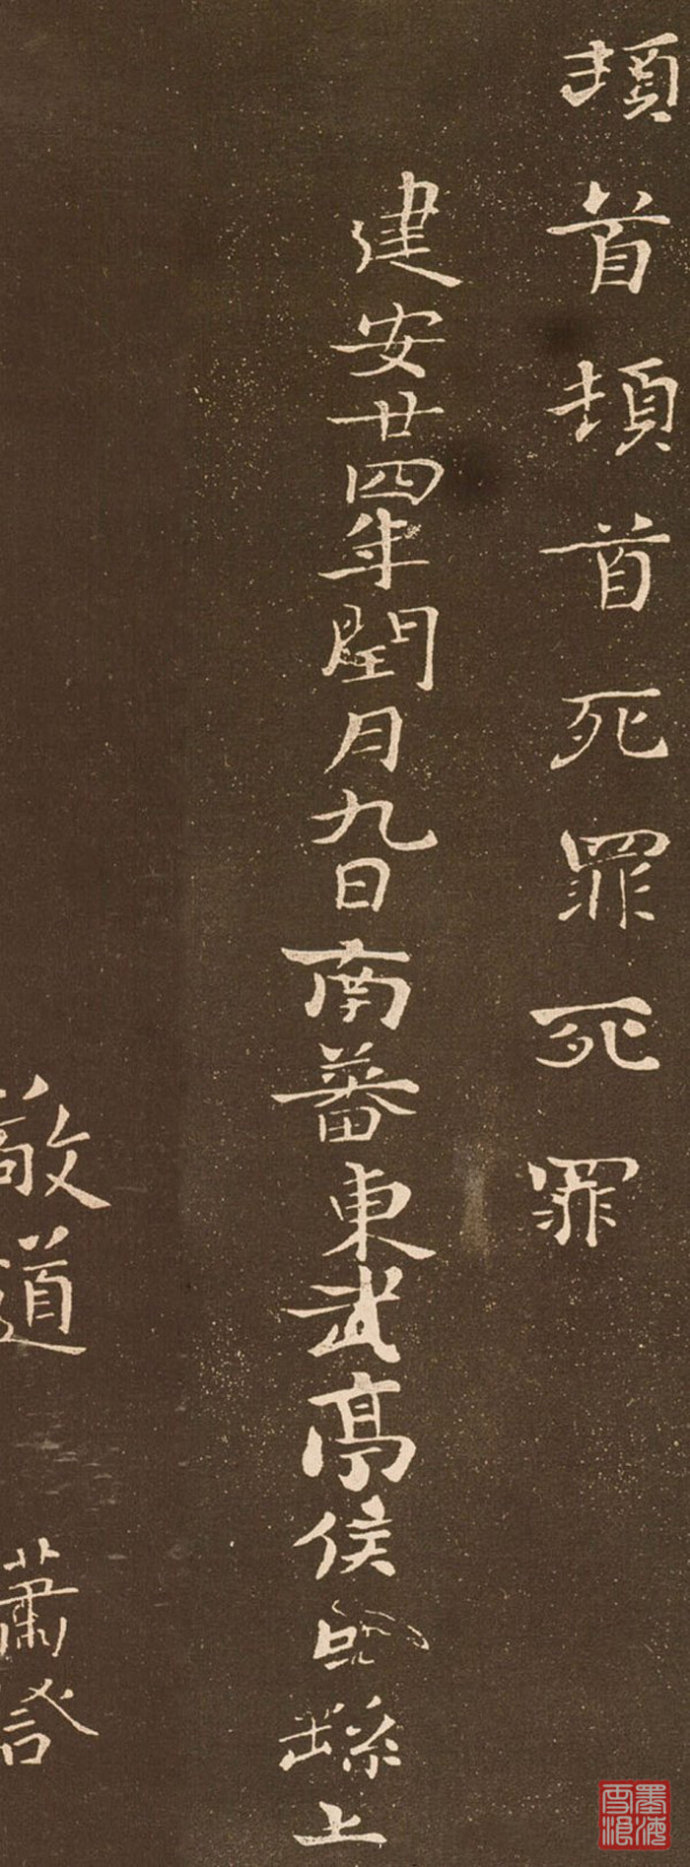 頓首頓首死罪死罪
建安廿四年閏月九日南蕃東武亭侯臣繇上
敬道
蕭詧
墨海雪浪